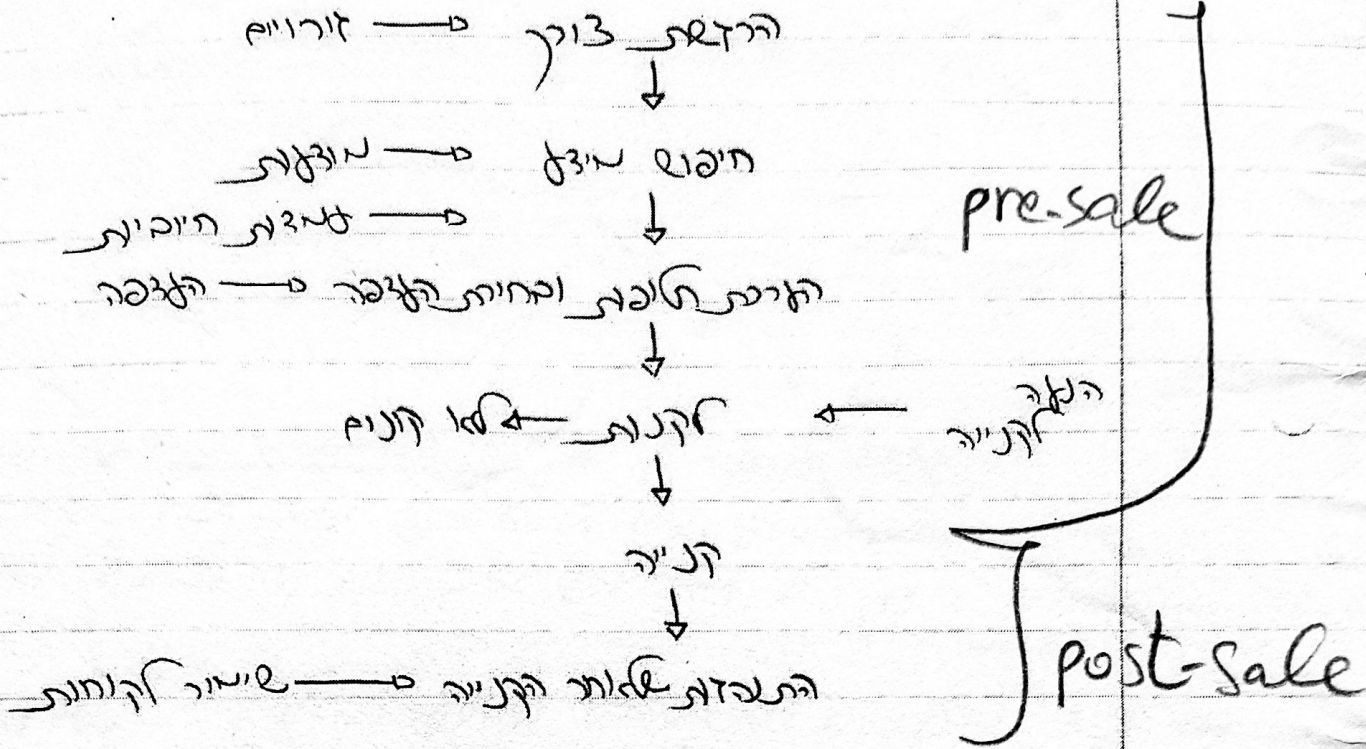 הרגשת צורך ← גירויים
חיפוש מידע ← מודעות
עמדות חיוביות
הערכת חלופות ובחירת העדפה ← העדפה
pre-sale
הנעה לקנייה
לקנות ← לא קונים
קנייה
התנהגות שלאחר הקנייה ← שימור לקוחות
post-sale